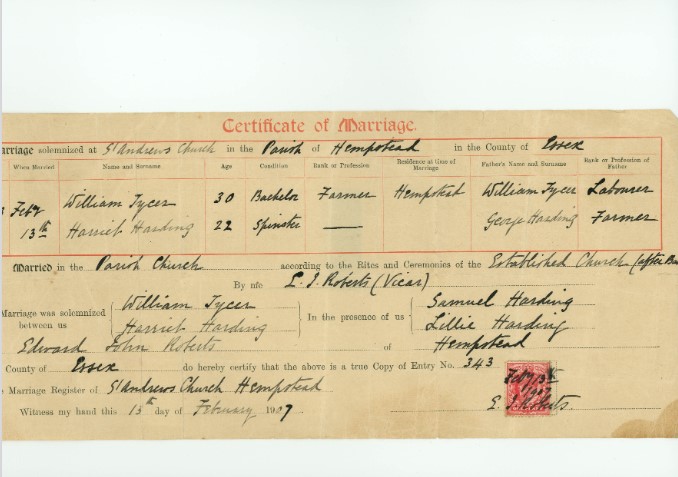 Certificate of Marriage.
arriage solemnized at St Andrews Church in the Parish of Hempstead in the County of Essex
When Married Name and Surname Age Condition Rank or Profession Residence at time of Marriage Father's Name and Surname Rank or Profession of Father
Feb 13th William Tycer 30 Bachelor Farmer Hempstead William Tycer Labourer
Harriet Harding 22 Spinster — George Harding Farmer
Married in the Parish Church according to the Rites and Ceremonies of the Established Church (after
By me E. J. Roberts (Vicar)
Marriage was solemnized between us William Tycer Harriet Harding In the presence of us Samuel Harding Lillie Harding
Edward John Roberts of Hempstead
County of Essex do hereby certify that the above is a true Copy of Entry No. 343
Marriage Register of St Andrews Church Hempstead
Witness my hand this 13th day of February 1907
Feby 13th
1907
E. J. Roberts.